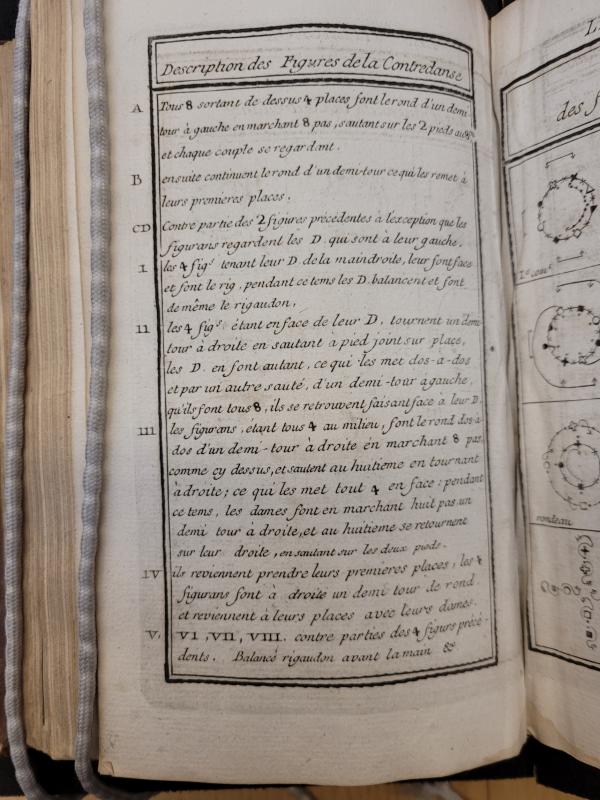 Description des Figures de la Contredanse
A Tous 8 sortant de dessus 4 places font le rond d'un demi
tour à gauche en marchant 8 pas, sautant sur les 2 pieds au 8me
et chaque couple se regardant.
B ensuite continuent le rond d'un demi-tour ce qui les remet à
leurs premieres places.
CD Contre partie des 2 figures précédentes à l'exception que les
figurans regardent les D. qui sont à leur gauche.
I les 4 figs. tenant leur D. de la main droite, leur font face
et font le rig. pendant ce tems les D. balancent et font
de même le rigaudon.
II les 4 figs. étant en face de leur D, tournent un demi
tour à droite en sautant à pied joint sur place,
les D. en font autant, ce qui les met dos-à-dos
et par un autre sauté, d'un demi-tour a gauche,
qu'ils font tous 8, ils se retrouvent faisant face à leur D.
III les figurans, etant tous 4 au milieu, font le rond dos-à-
dos d'un demi-tour à droite en marchant 8 pas,
comme cy dessus, et sautent au huitieme en tournant
à droite; ce qui les met tout 4 en face: pendant
ce tems, les dames font en marchant huit pas un
demi tour à droite, et au huitieme se retournent
sur leur droite, en sautant sur les deux pieds.
IV ils reviennent prendre leurs premieres places, les 4
figurans font à droite un demi tour de rond
et reviennent à leurs places avec leurs dames.
V. VI, VII, VIII. contre parties des 4 figurs précé-
dents. Balancé rigaudon avant la main &c
des f
rondeau